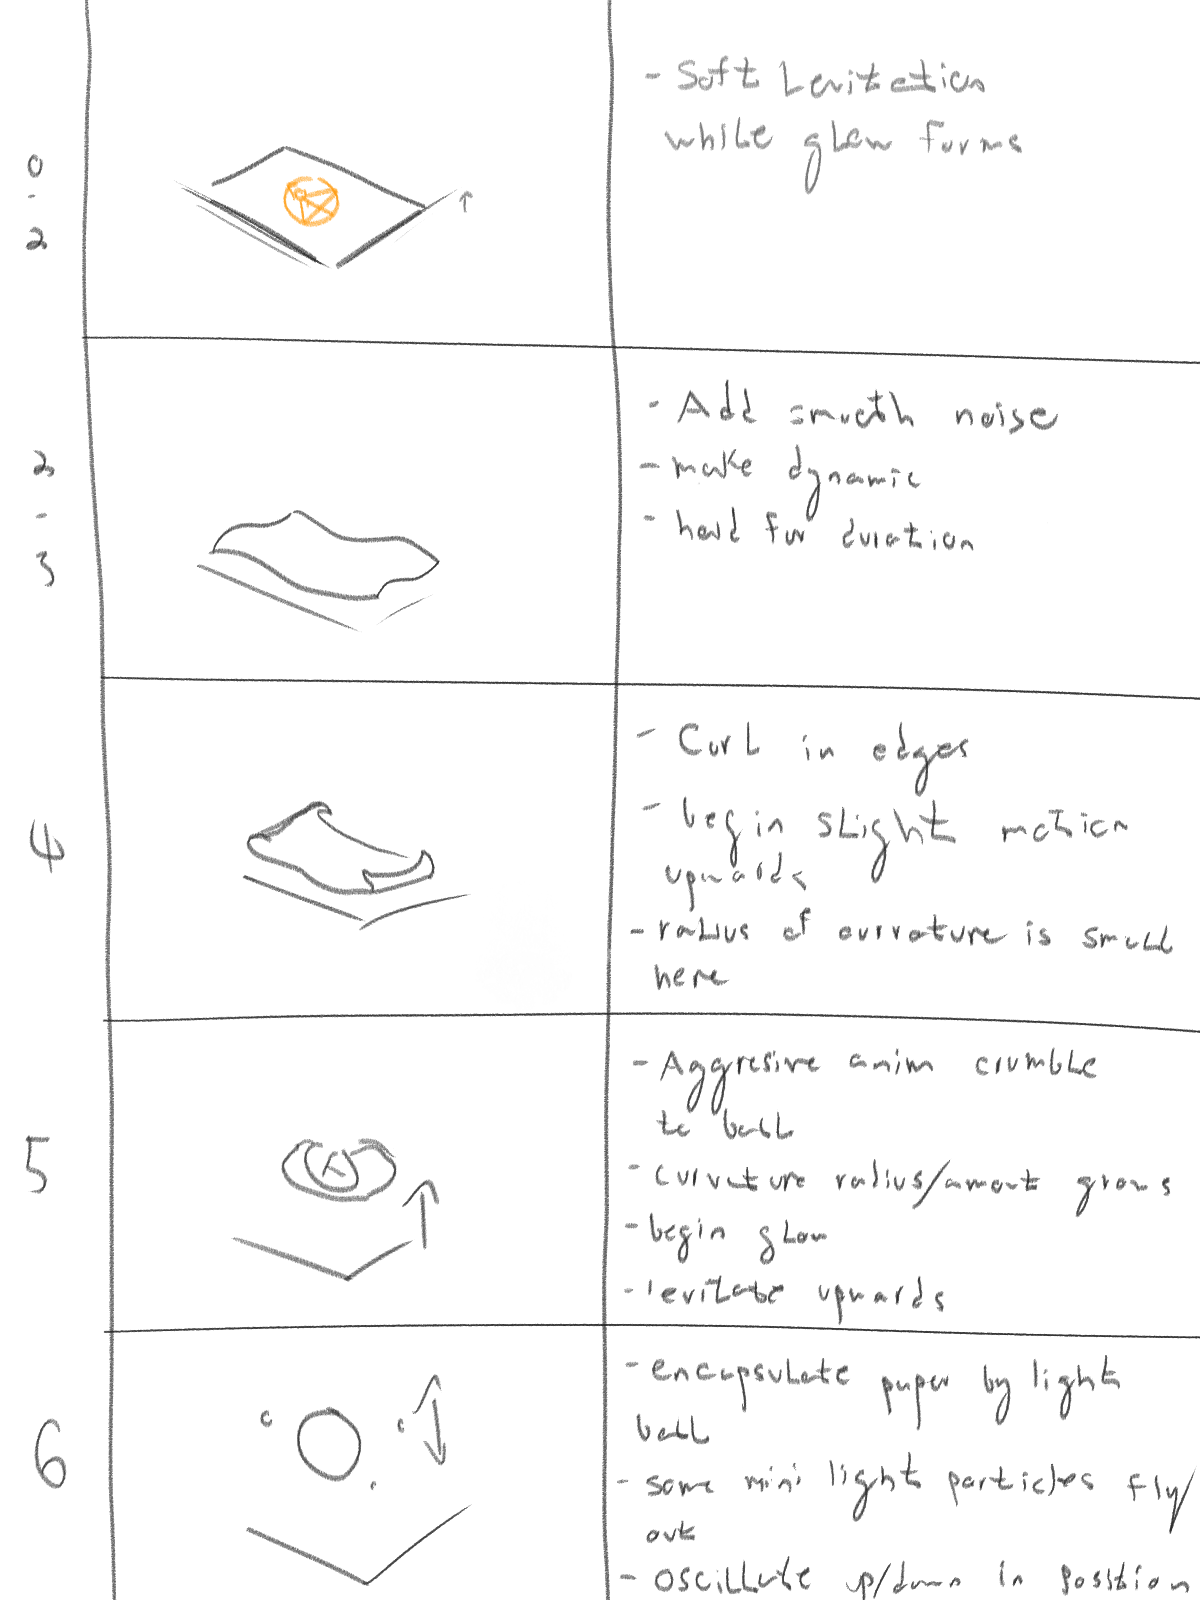 0
-
2
- Soft Levitation
while glow forms
2
-
3
- Add smooth noise
- make dynamic
- hold for duration
4
- Curl in edges
- begin slight motion
upwards
- radius of curvature is small
here
5
- Aggresive anim crumble
to ball
- curvature radius/amount grows
- begin glow
- levitate upwards
6
- encapsulate paper by light
ball
- some mini light particles fly/
out
- oscillate up/down in position